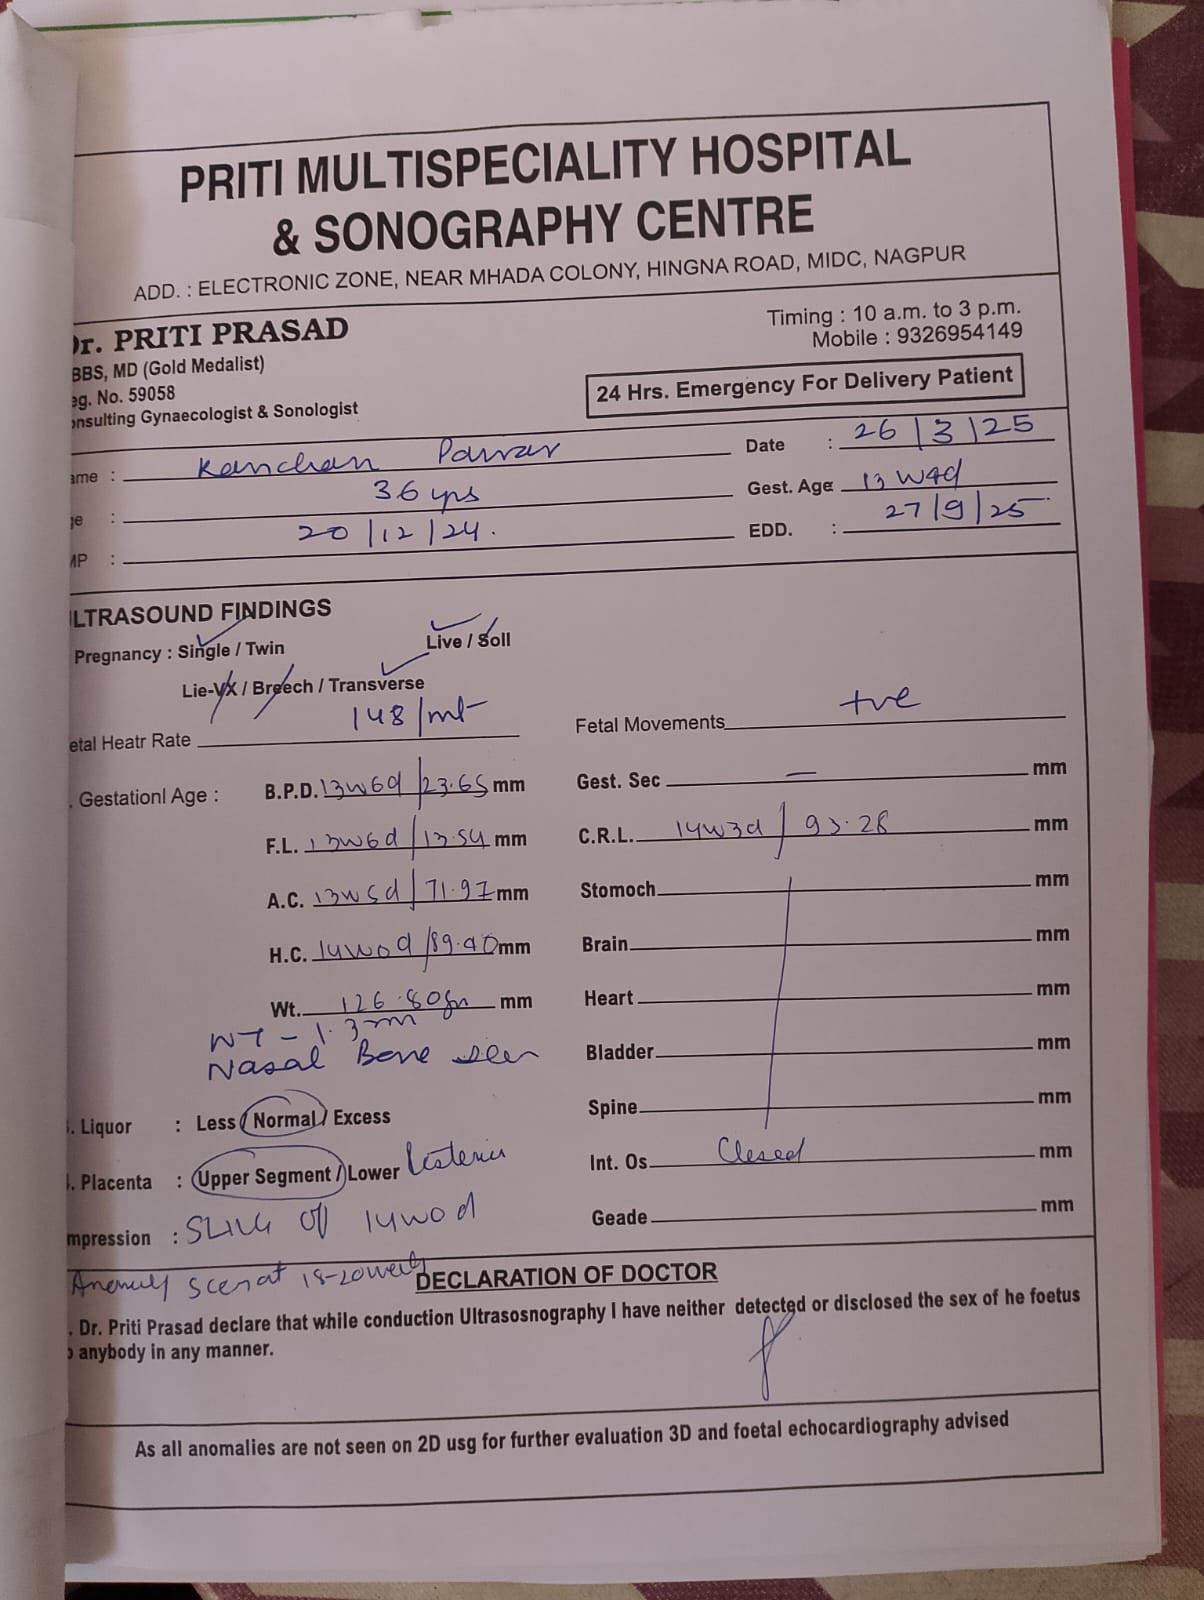 PRITI MULTISPECIALITY HOSPITAL
& SONOGRAPHY CENTRE
ADD. : ELECTRONIC ZONE, NEAR MHADA COLONY, HINGNA ROAD, MIDC, NAGPUR
r. PRITI PRASAD
BBS, MD (Gold Medalist)
eg. No. 59058
onsulting Gynaecologist & Sonologist
Timing : 10 a.m. to 3 p.m.
Mobile : 9326954149
24 Hrs. Emergency For Delivery Patient
ame : Kanchan Pawar
Date : 26/3/25
ge : 36 yrs
Gest. Age 13 W4d
MP : 20/12/24.
EDD. : 27/9/25
LTRASOUND FINDINGS
Pregnancy : Single / Twin
Live / Soll
Lie-VX / Breech / Transverse
etal Heatr Rate 148/mt
Fetal Movements +ve
. Gestationl Age : B.P.D. 13w6d/23.65 mm
Gest. Sec — mm
F.L. 13w6d/13.54 mm
C.R.L. 14w3d / mm
A.C. 13w5d/71.97 mm
Stomoch mm
H.C. 14w0d/89.40 mm
Brain mm
Wt. 126.80gm mm
Heart mm
NT - 1.3mm
Nasal Bone seen
Bladder mm
Spine mm
. Liquor : Less / Normal / Excess
Int. Os. Closed mm
. Placenta : Upper Segment / Lower
Geade mm
mpression : SLIUG of 14w0d
Anomaly scan at 18-20 week
DECLARATION OF DOCTOR
. Dr. Priti Prasad declare that while conduction Ultrasosnography I have neither detected or disclosed the sex of he foetus
o anybody in any manner.
As all anomalies are not seen on 2D usg for further evaluation 3D and foetal echocardiography advised